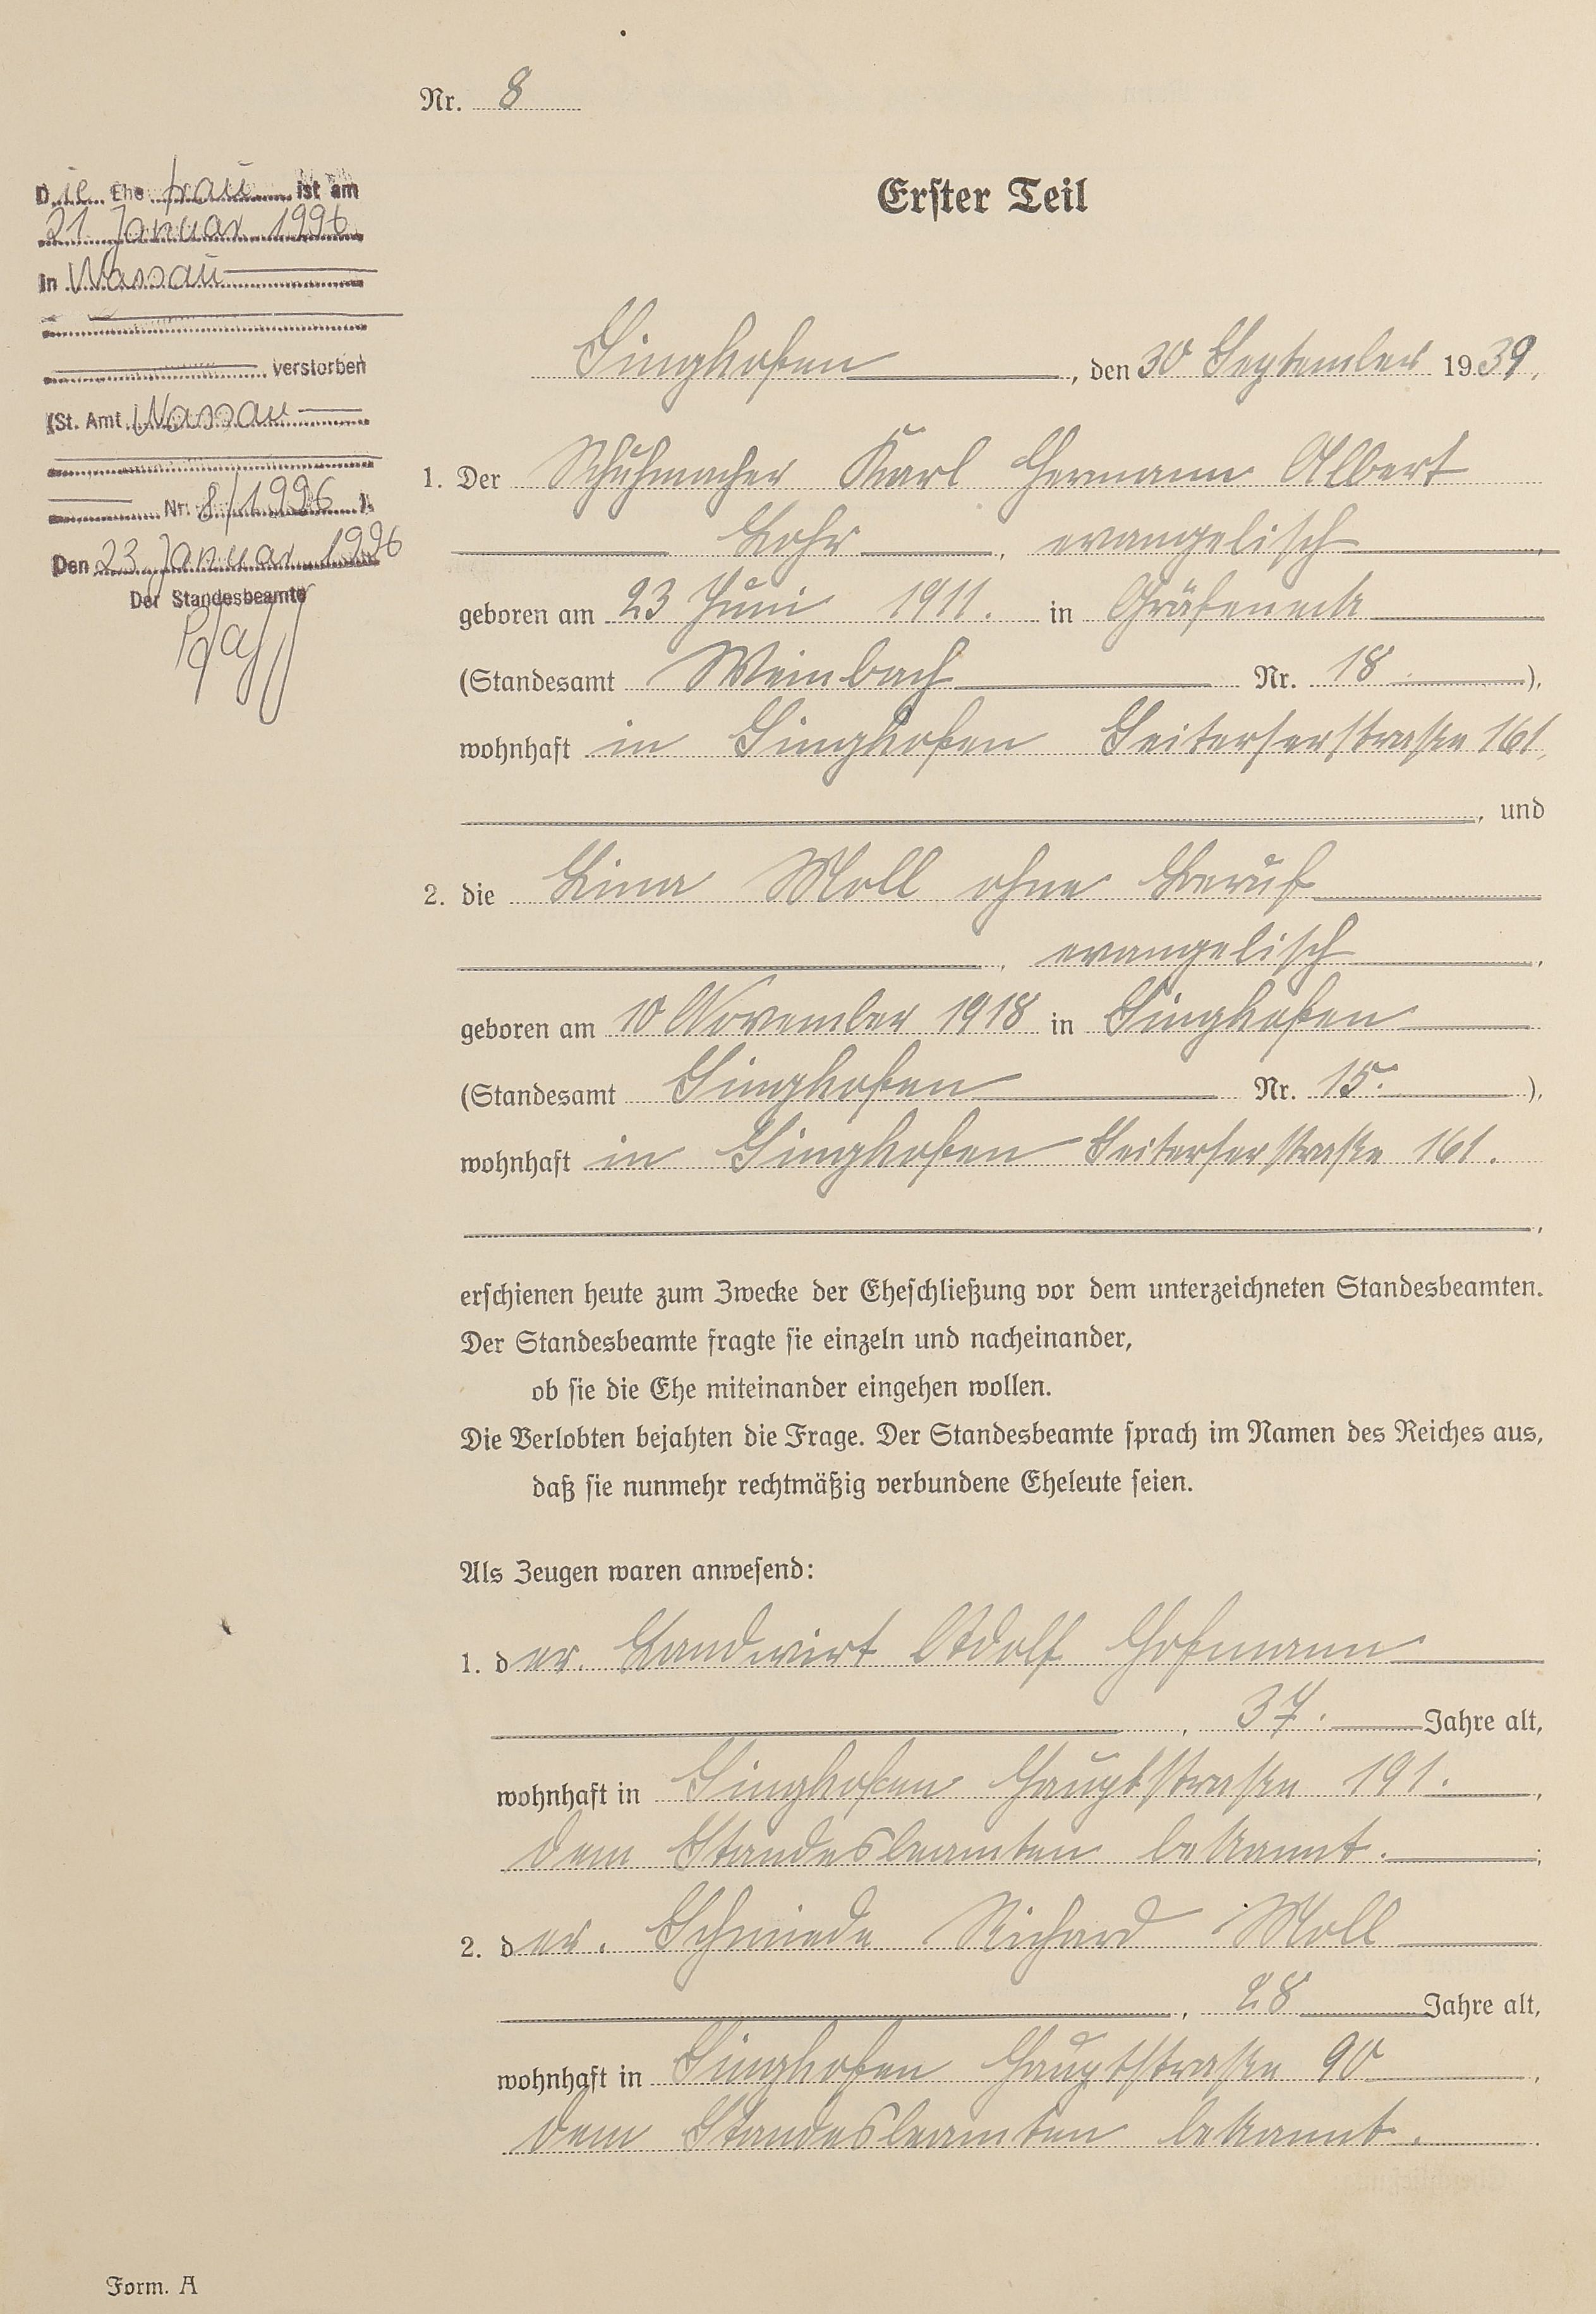 Nr. 8
Die Ehefrau ist am
21. Januar 1996
in Nassau
verstorben
(St. Amt Nassau
Nr. 8/1996 ).
Den 23. Januar 1996
Der Standesbeamte
Erster Teil
Singhofen, den 30 September 1939.
1. Der Schuhmacher Karl Hermann Albert
Lohr, evangelisch,
geboren am 23 Juni 1911. in Gräfeneck
(Standesamt Weinbach Nr. 18 ),
wohnhaft in Singhofen 161.
, und
2. die Lina Moll ohne Beruf
, evangelisch,
geboren am 10 November 1918 in Singhofen
(Standesamt Singhofen Nr. 15. ),
wohnhaft in Singhofen 161.
,
erschienen heute zum Zwecke der Eheschließung vor dem unterzeichneten Standesbeamten.
Der Standesbeamte fragte sie einzeln und nacheinander,
ob sie die Ehe miteinander eingehen wollen.
Die Verlobten bejahten die Frage. Der Standesbeamte sprach im Namen des Reiches aus,
daß sie nunmehr rechtmäßig verbundene Eheleute seien.
Als Zeugen waren anwesend:
1. der. Landwirt Adolf Hofmann
, 37. Jahre alt,
wohnhaft in Singhofen Hauptstraße 191.,
dem Standesbeamten bekannt.;
2. der. Schmiede Richard Moll
, 28 Jahre alt,
wohnhaft in Singhofen Hauptstraße 90,
dem Standesbeamten bekannt.
Form. A